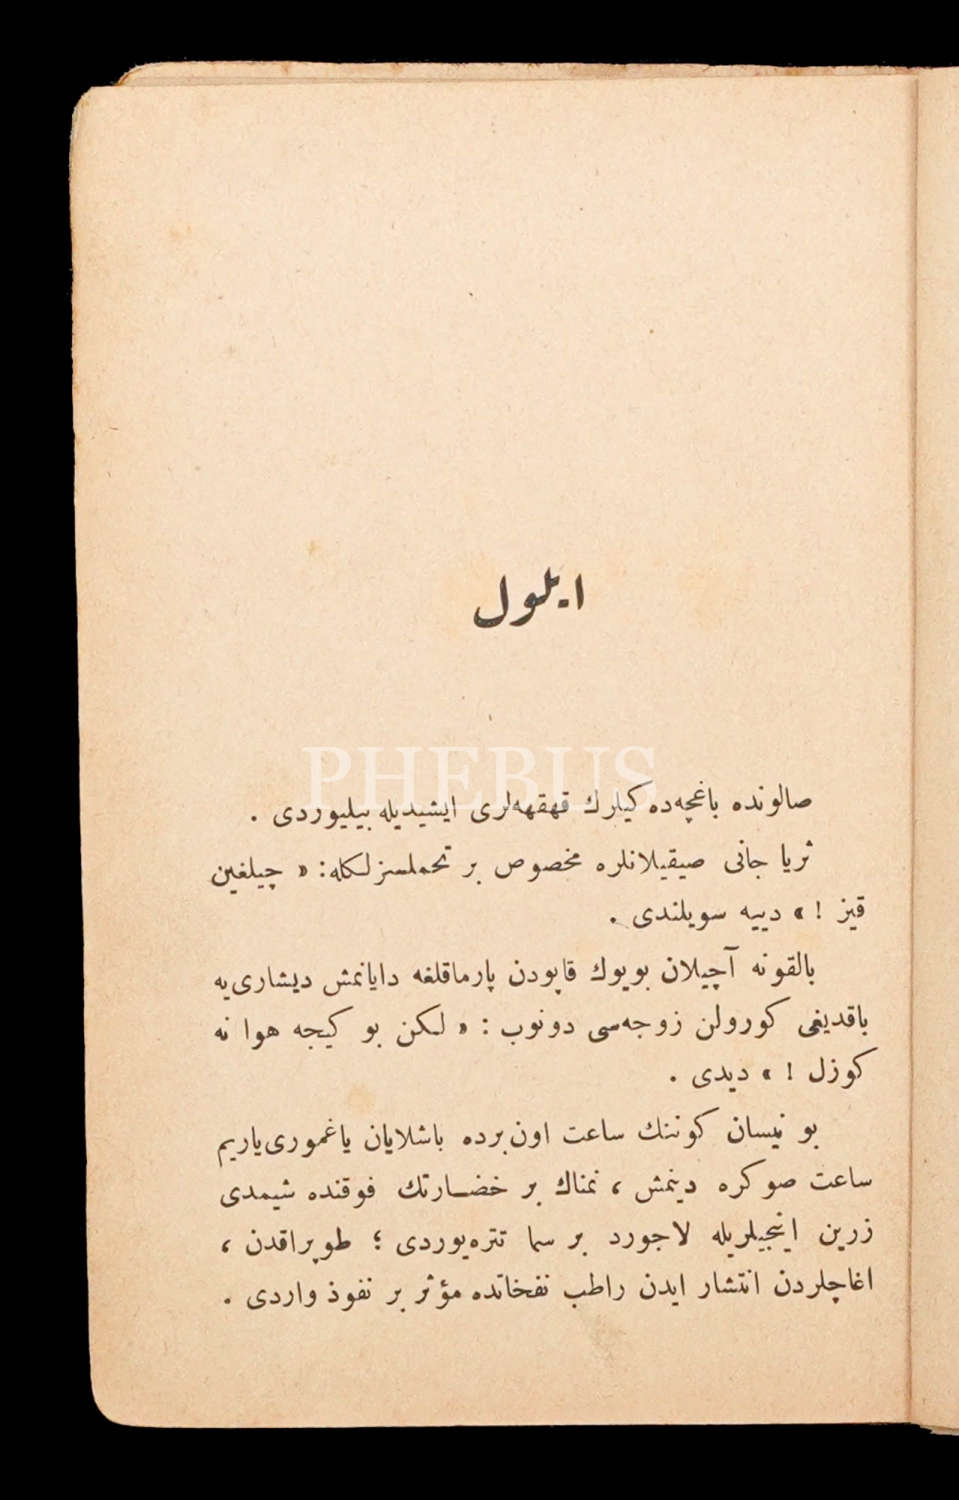 ايلول
PHEBUS
صالونده باغچه‌ده كيلرك قهقهه‌لرى ايشيديله بيليوردى .
ثريا جانى صيقيلانلره مخصوص بر تحملسزلكله: « چيلغين
قيز ! » دييه سويلندى .
بالقونه آچيلان بويوك قاپودن پارماقلغه دايانمش ديشارى‌يه
باقديغى كورولن زوجه‌سى دونوب : « لكن بو كيجه هوا نه
كوزل ! » ديدى .
بو نيسان كوننك ساعت اون‌برده باشلايان ياغمورى‌ياريم
ساعت صوكره دينمش ، نمناك بر خضارتك فوقنده شيمدى
زرين اينجيلريله لاجورد بر سما تتره‌يوردى ؛ طوپراقدن ،
اغاچلردن انتشار ايدن راطب نفخاتده مؤثر بر نفوذ واردى .